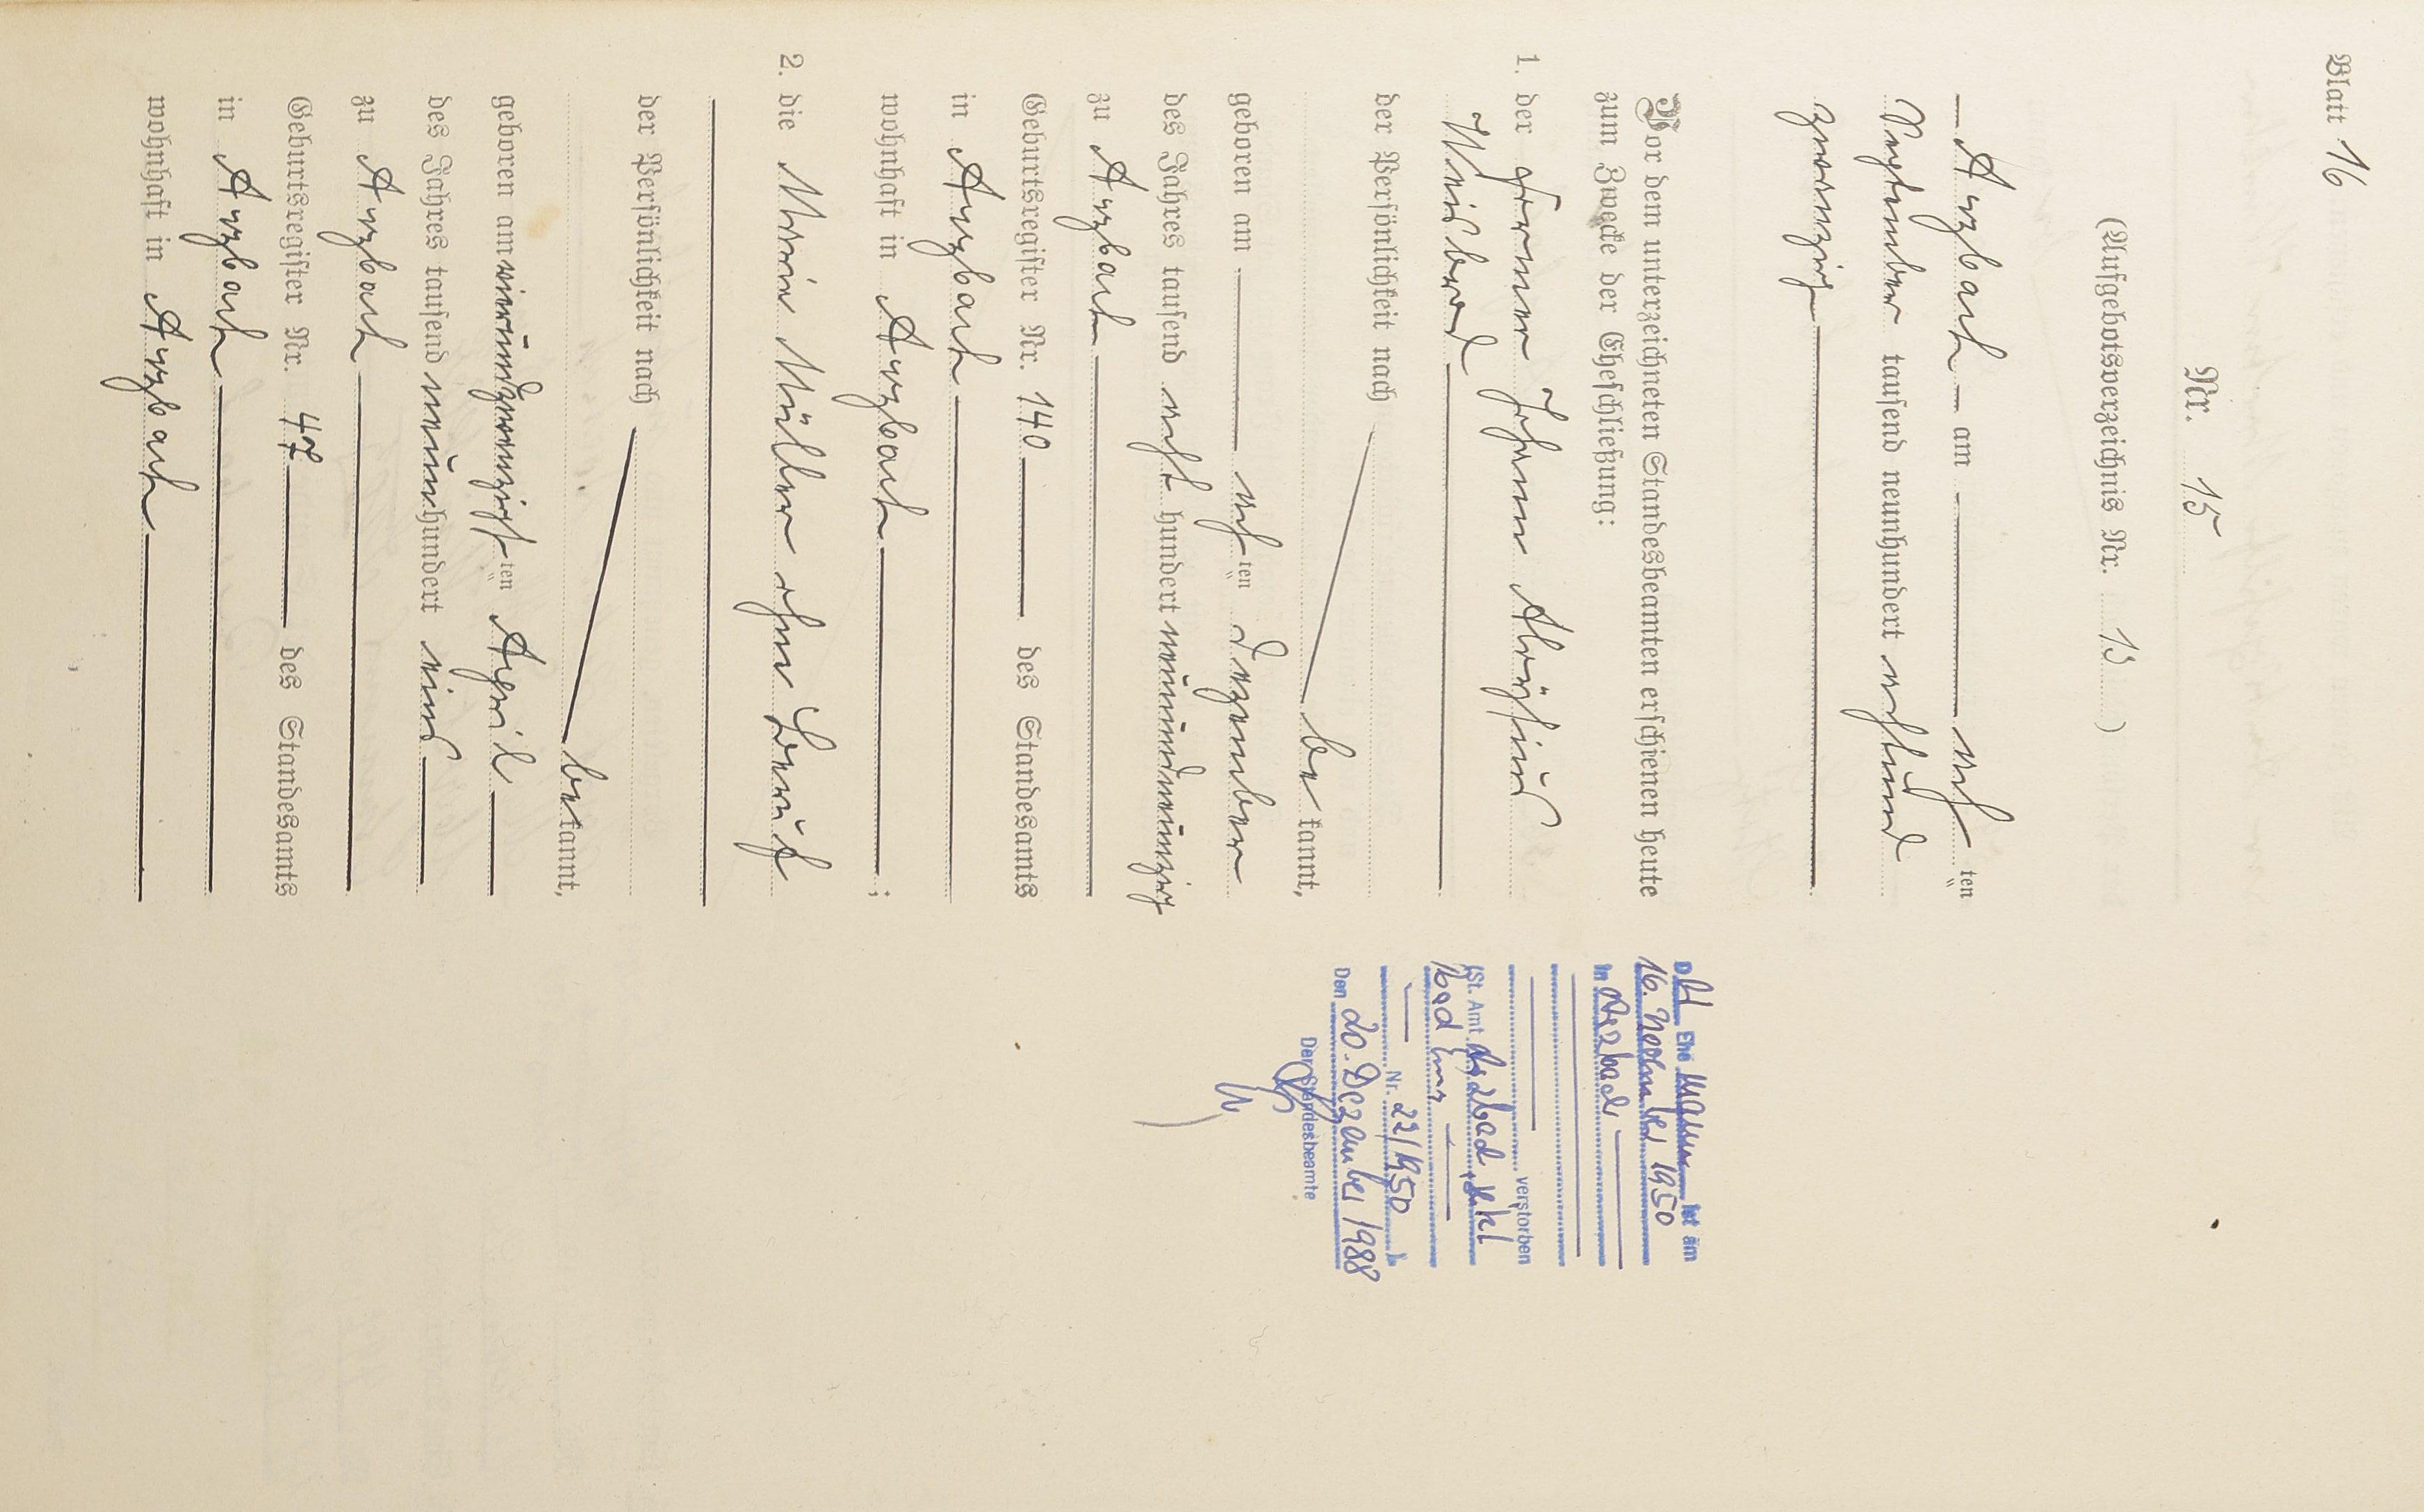 Blatt 16
Nr. 15
(Aufgebotsverzeichnis Nr. 13)
Arzbach am acht ten
September tausend neunhundert achtund
zwanzig
Vor dem unterzeichneten Standesbeamten erschienen heute
zum Zwecke der Eheschließung:
1. der Former Johann Aloysius
der Persönlichkeit nach
be kannt,
geboren am acht ten Dezember
des Jahres tausend acht hundert neunundneunzig
zu Arzbach
Geburtsregister Nr. 140 des Standesamts
in Arzbach
wohnhaft in Arzbach ;
2. die Maria Müller ohne Beruf
der Persönlichkeit nach
bekannt,
geboren am vierundzwanzigsten April
des Jahres tausend neunhundert eins
zu Arzbach
Geburtsregister Nr. 47 des Standesamts
in Arzbach
wohnhaft in Arzbach
D Ehemann ist am
16. November 1950
in Arzbach
verstorben
(St. Amt Arzbach, jetzt
Bad Ems
Nr. 22/1950 )
Den 20. Dezember 1988
Der Standesbeamte